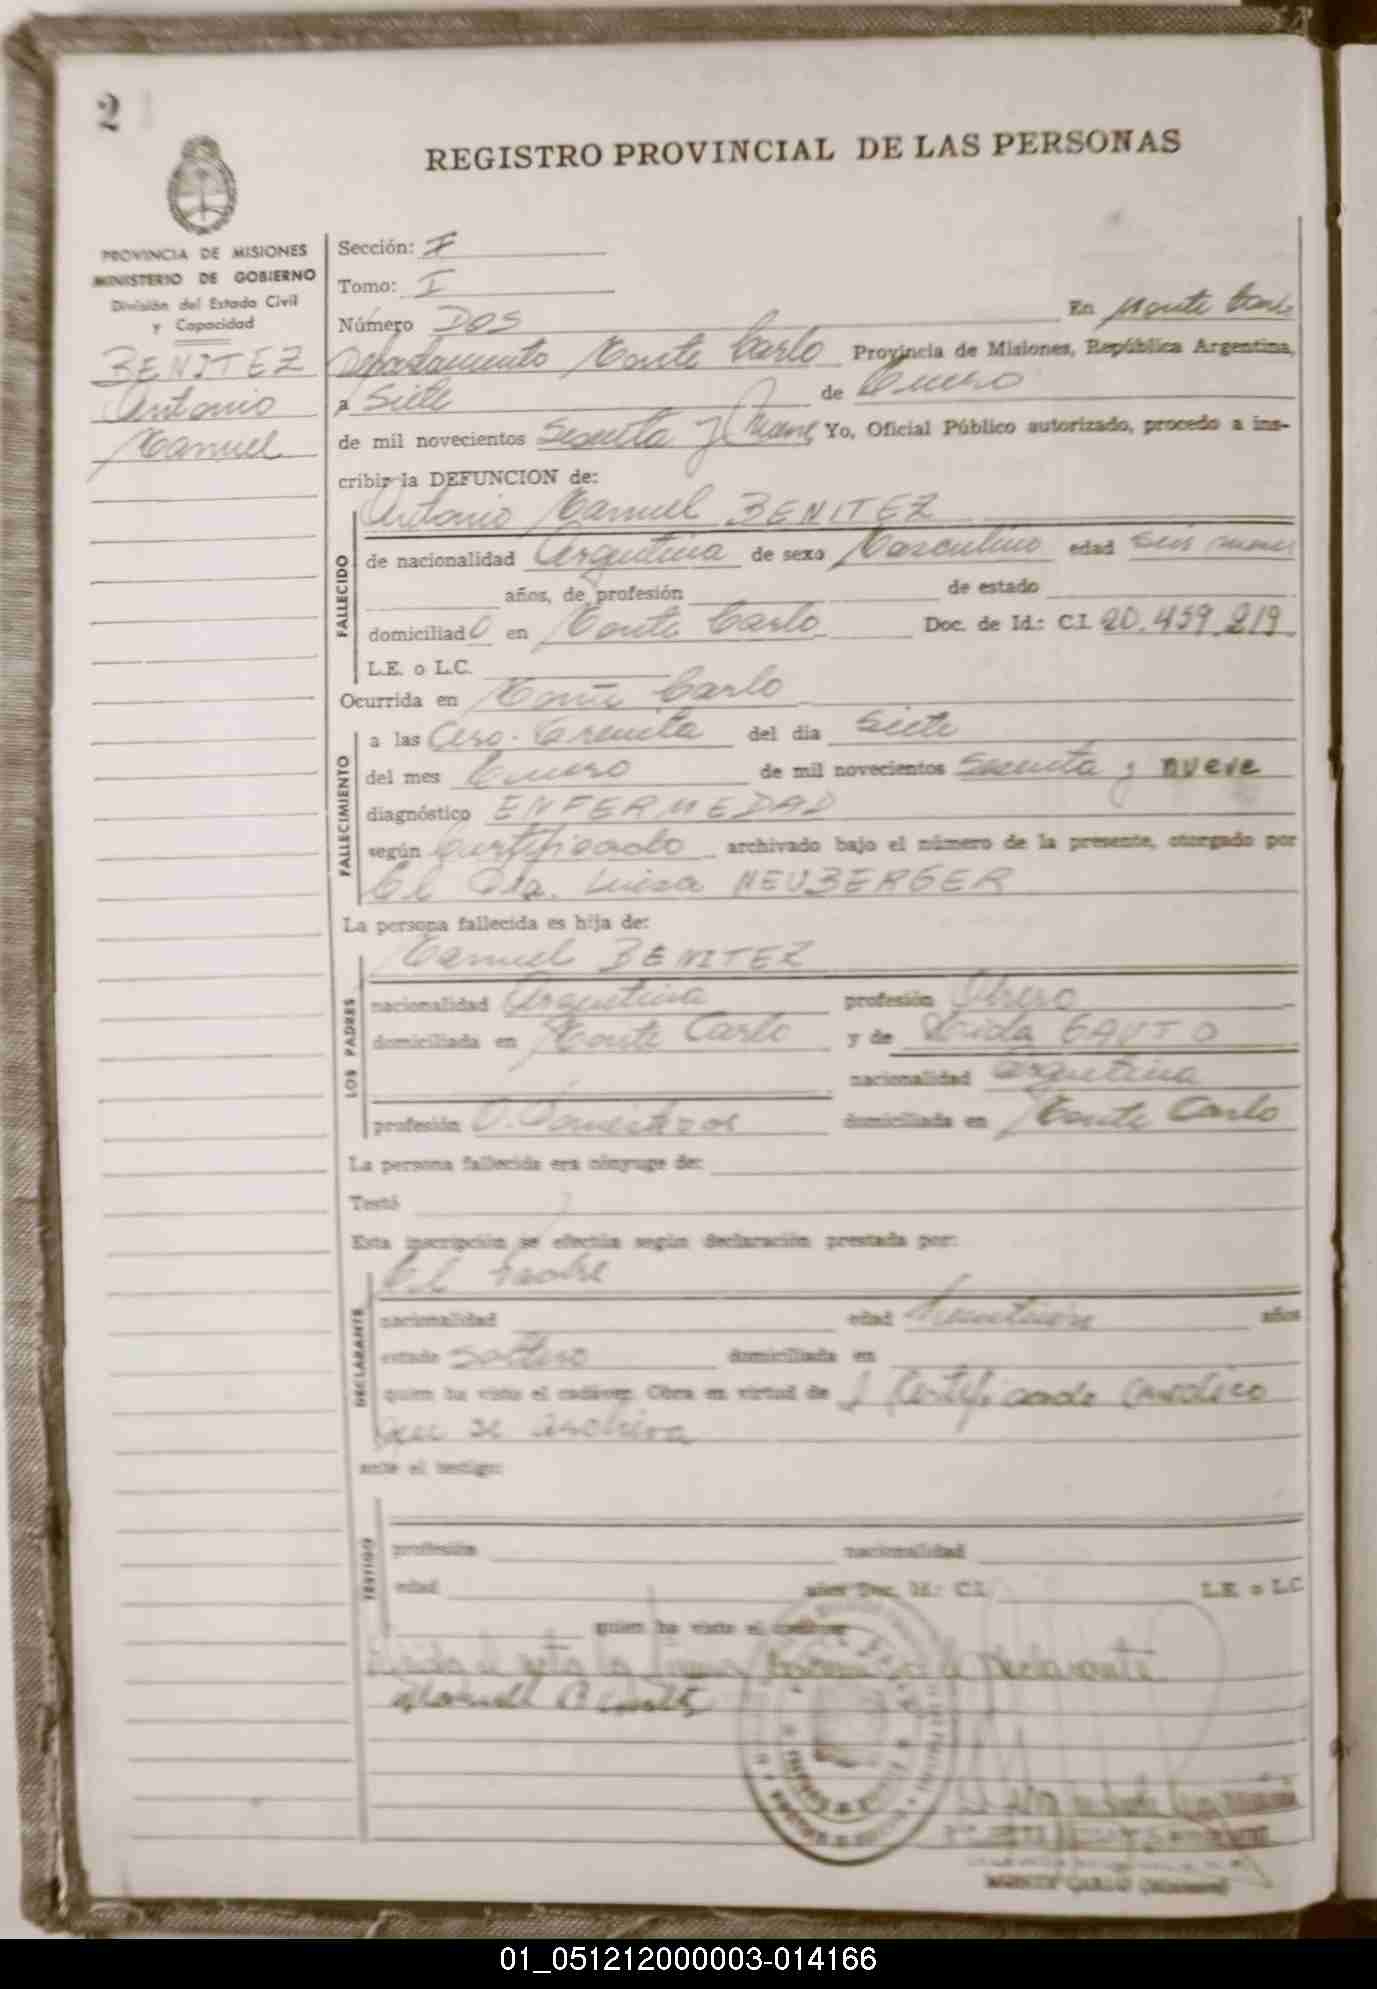 2
REGISTRO PROVINCIAL DE LAS PERSONAS
PROVINCIA DE MISIONES
MINISTERIO DE GOBIERNO
División del Estado Civil
y Capacidad
BENITEZ
Antonio
Manuel
Sección: I
Tomo: I
Número DOS En Monte Carlo
Departamento Monte Carlo Provincia de Misiones, República Argentina,
a Siete de Enero
de mil novecientos Sesenta y Nueve Yo, Oficial Público autorizado, procedo a ins-
cribir la DEFUNCION de:
Antonio Manuel BENITEZ
FALLECIDO
de nacionalidad Argentina de sexo Masculino edad seis meses
años, de profesión de estado
domiciliado en Monte Carlo Doc. de Id.: C.I. 20.459.219
L.E. o L.C.
Ocurrida en Monte Carlo
FALLECIMIENTO
a las Cero. Treinta del dia Siete
del mes Enero de mil novecientos Sesenta y nueve
diagnóstico ENFERMEDAD
según Certificado archivado bajo el número de la presente, otorgado por
El Dra. Luisa NEUBERGER
La persona fallecida es hija de:
Manuel BENITEZ
LOS PADRES
nacionalidad Argentina profesión Obrero
domiciliada en Monte Carlo y de GAUTO
nacionalidad argentina
profesión Q. Domésticos domiciliada en Monte Carlo
La persona fallecida era cónyuge de:
Testó
Esta inscripción se efectúa según declaración prestada por:
El Padre
DECLARANTE
nacionalidad edad años
estado Soltero domiciliada en
quien ha visto el cadáver. Obra en virtud de Certificado medico
que se archiva
ante el testigo:
TESTIGO
profesión nacionalidad
edad años Doc. Id.: C.I. L.E. o L.C.
quien ha visto el cadáver
el acta la firma el declarante
Manuel Benitez
MONTE CARLO (Misiones)
01_051212000003-014166